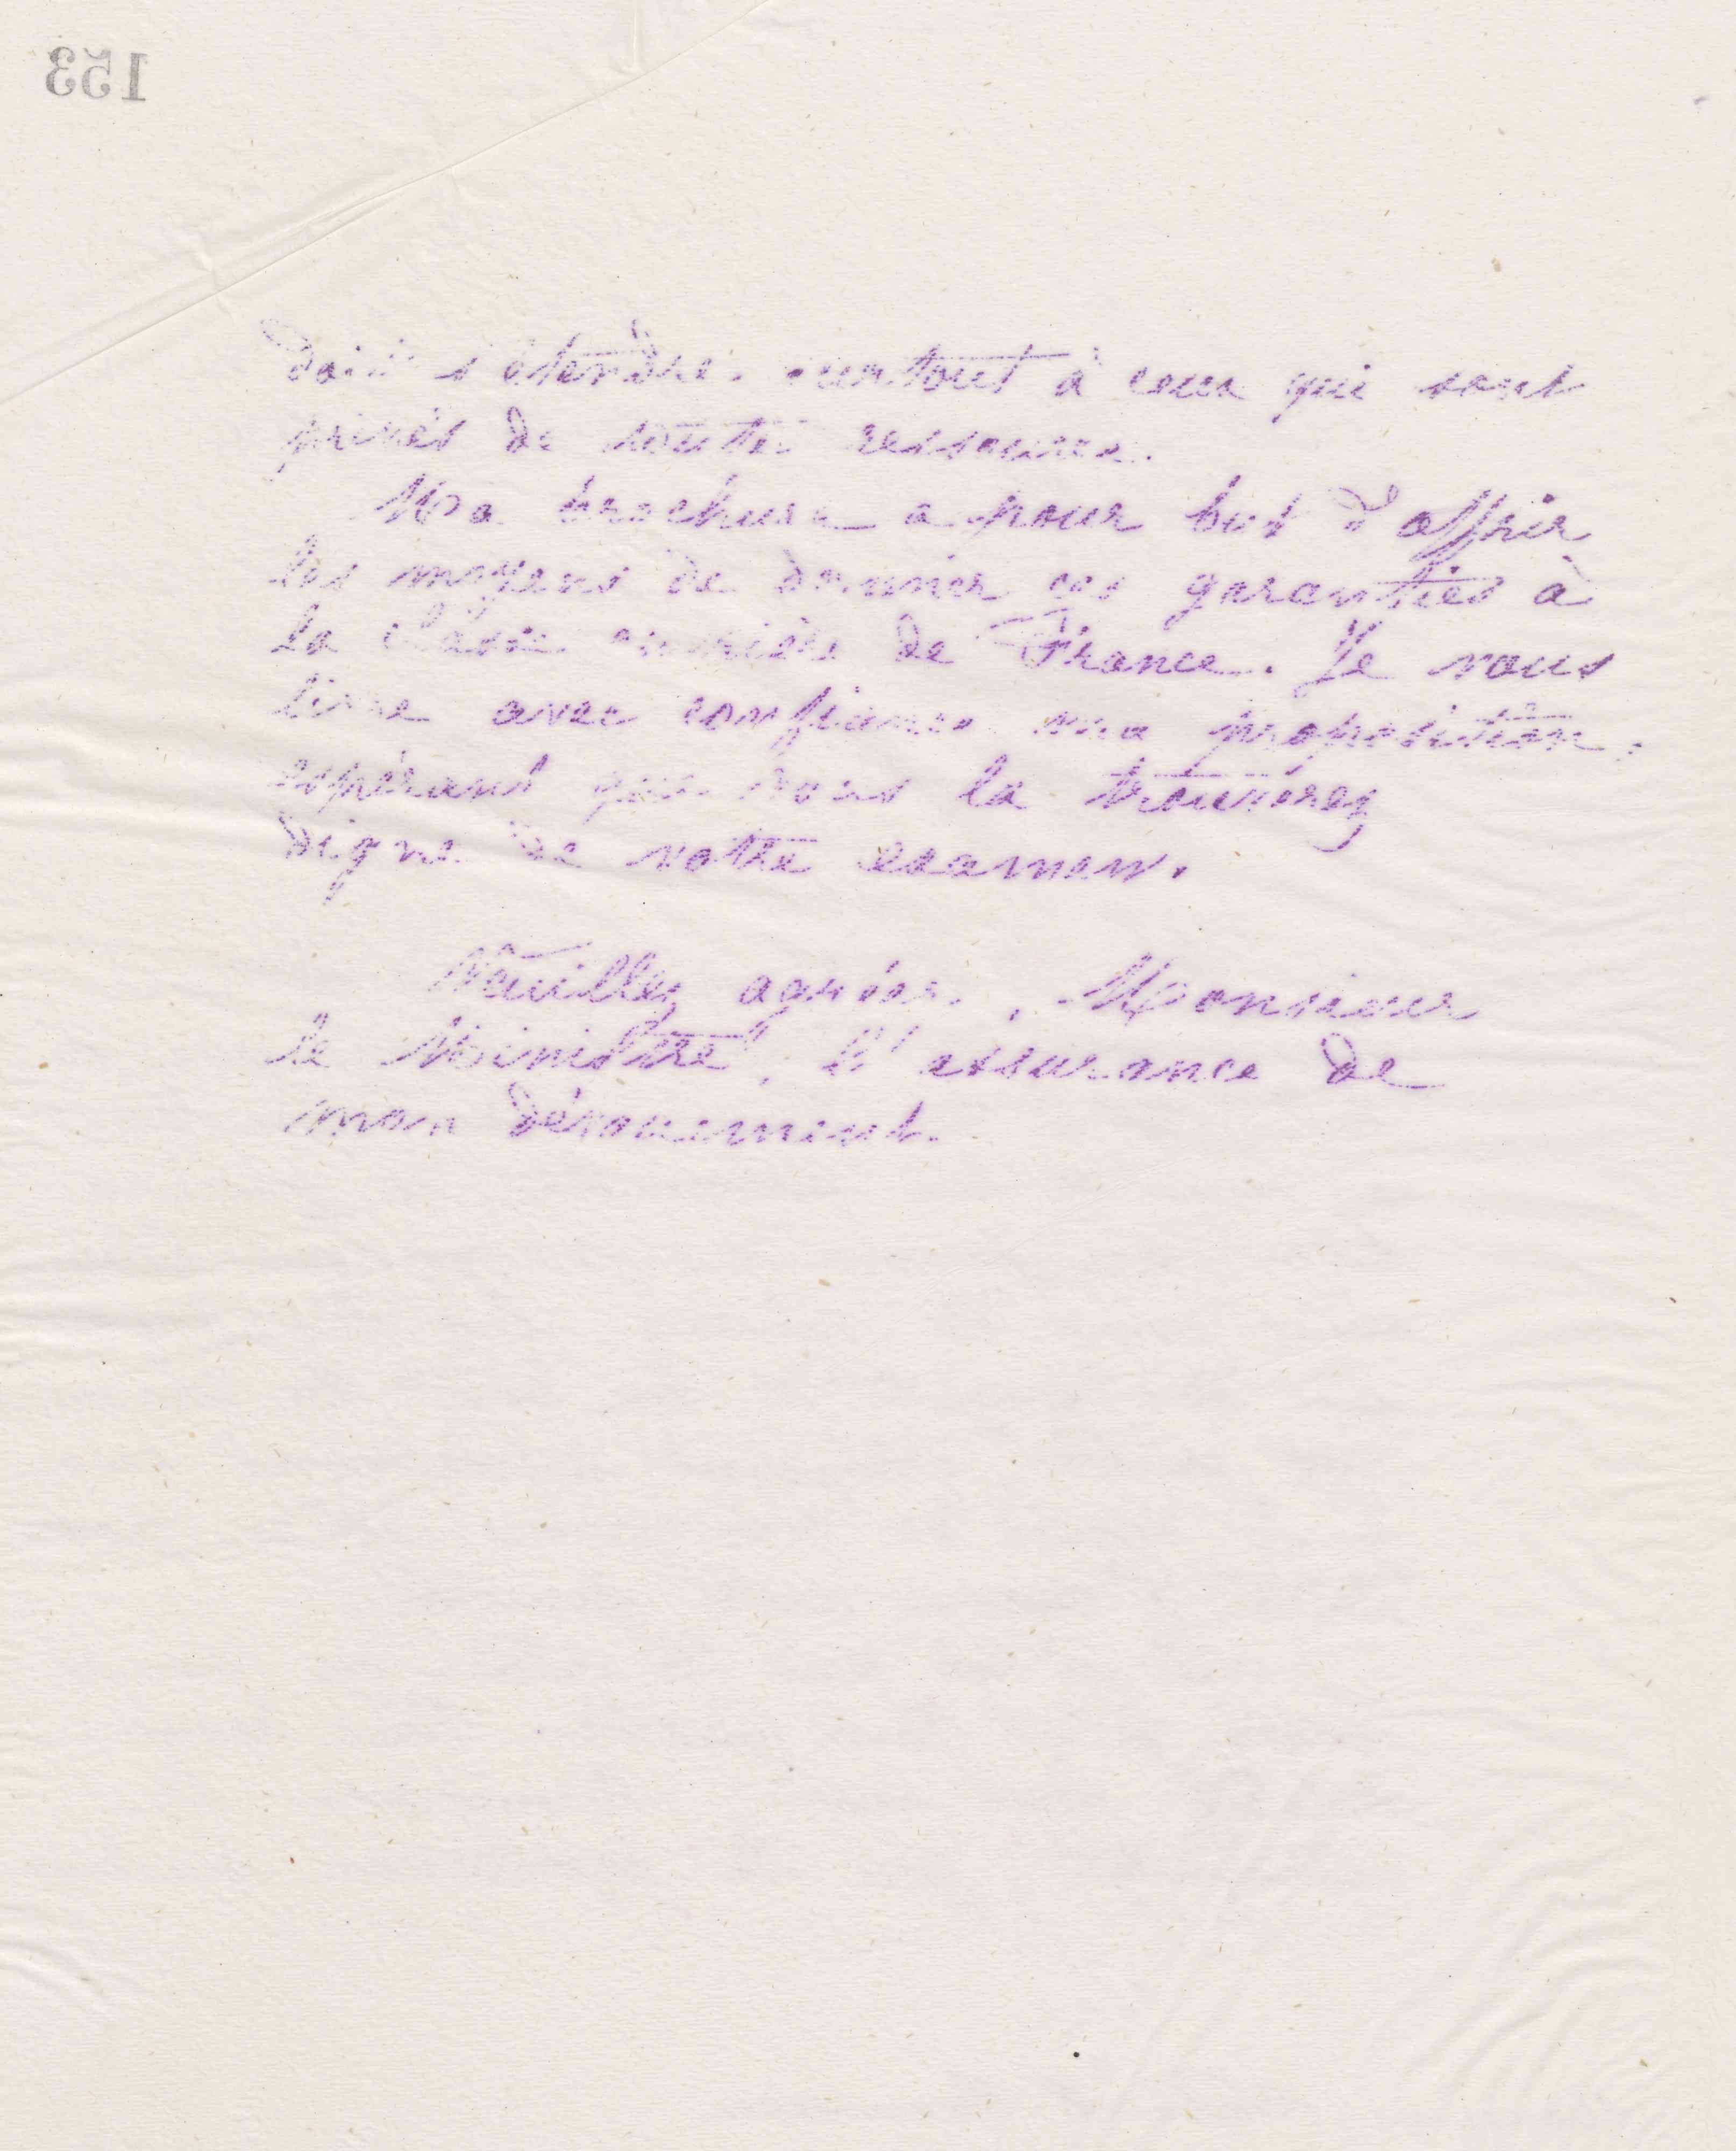 153
doit s'étendre surtout à ceux qui sont
privés de toute ressource.
Ma brochure a pour but d'offrir
les moyens de donner ces garanties à
la classe ouvrière de France. Je vous
livre avec confiance ma proposition,
espérant que vous la trouverez
digne de votre examen.
Veuillez agréer, Monsieur
le Ministre, l'assurance de
mon dévouement.